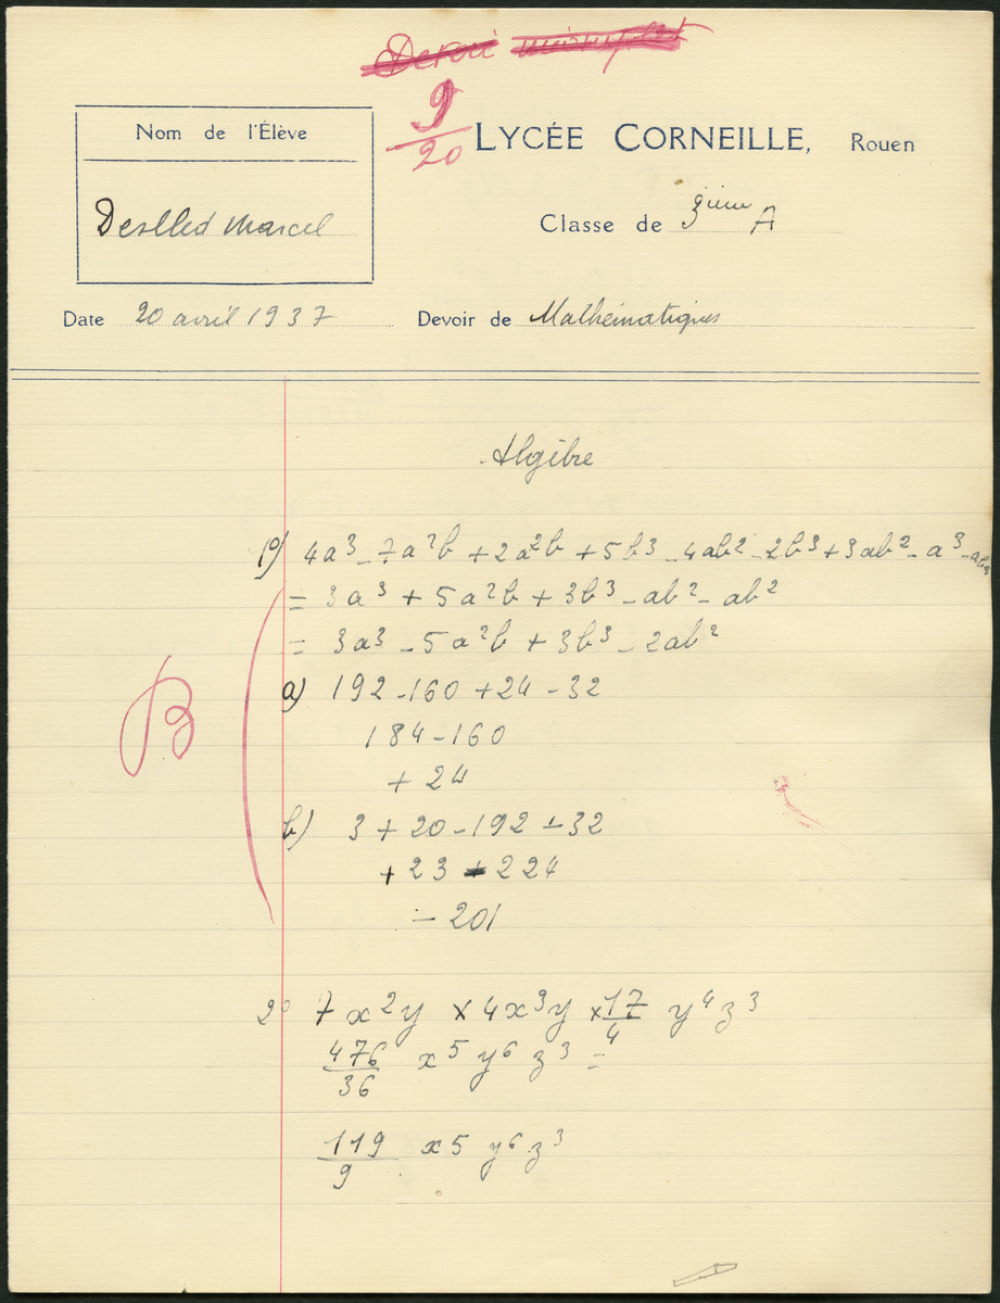 Devoir incomplet
9/20
LYCÉE CORNEILLE, Rouen
Nom de l'Élève
Marcel
Classe de 3ième A
Date 20 avril 1937 Devoir de Mathématiques
Algèbre
1°) 4a³ - 7a²b + 2a²b + 5b³ - 4ab² - 2b³ + 3ab² - a³ - ab²
= 3a³ + 5a²b + 3b³ - ab² - ab²
= 3a³ - 5a²b + 3b³ - 2ab²
B
a) 192 - 160 + 24 - 32
184 - 160
+ 24
b) 3 + 20 - 192 - 32
+ 23 - 224
- 201
2° 7x²y × 4x³y × 17/4 y⁴z³
476/36 x⁵ y⁶ z³ =
119/9 x5 y⁶ z³